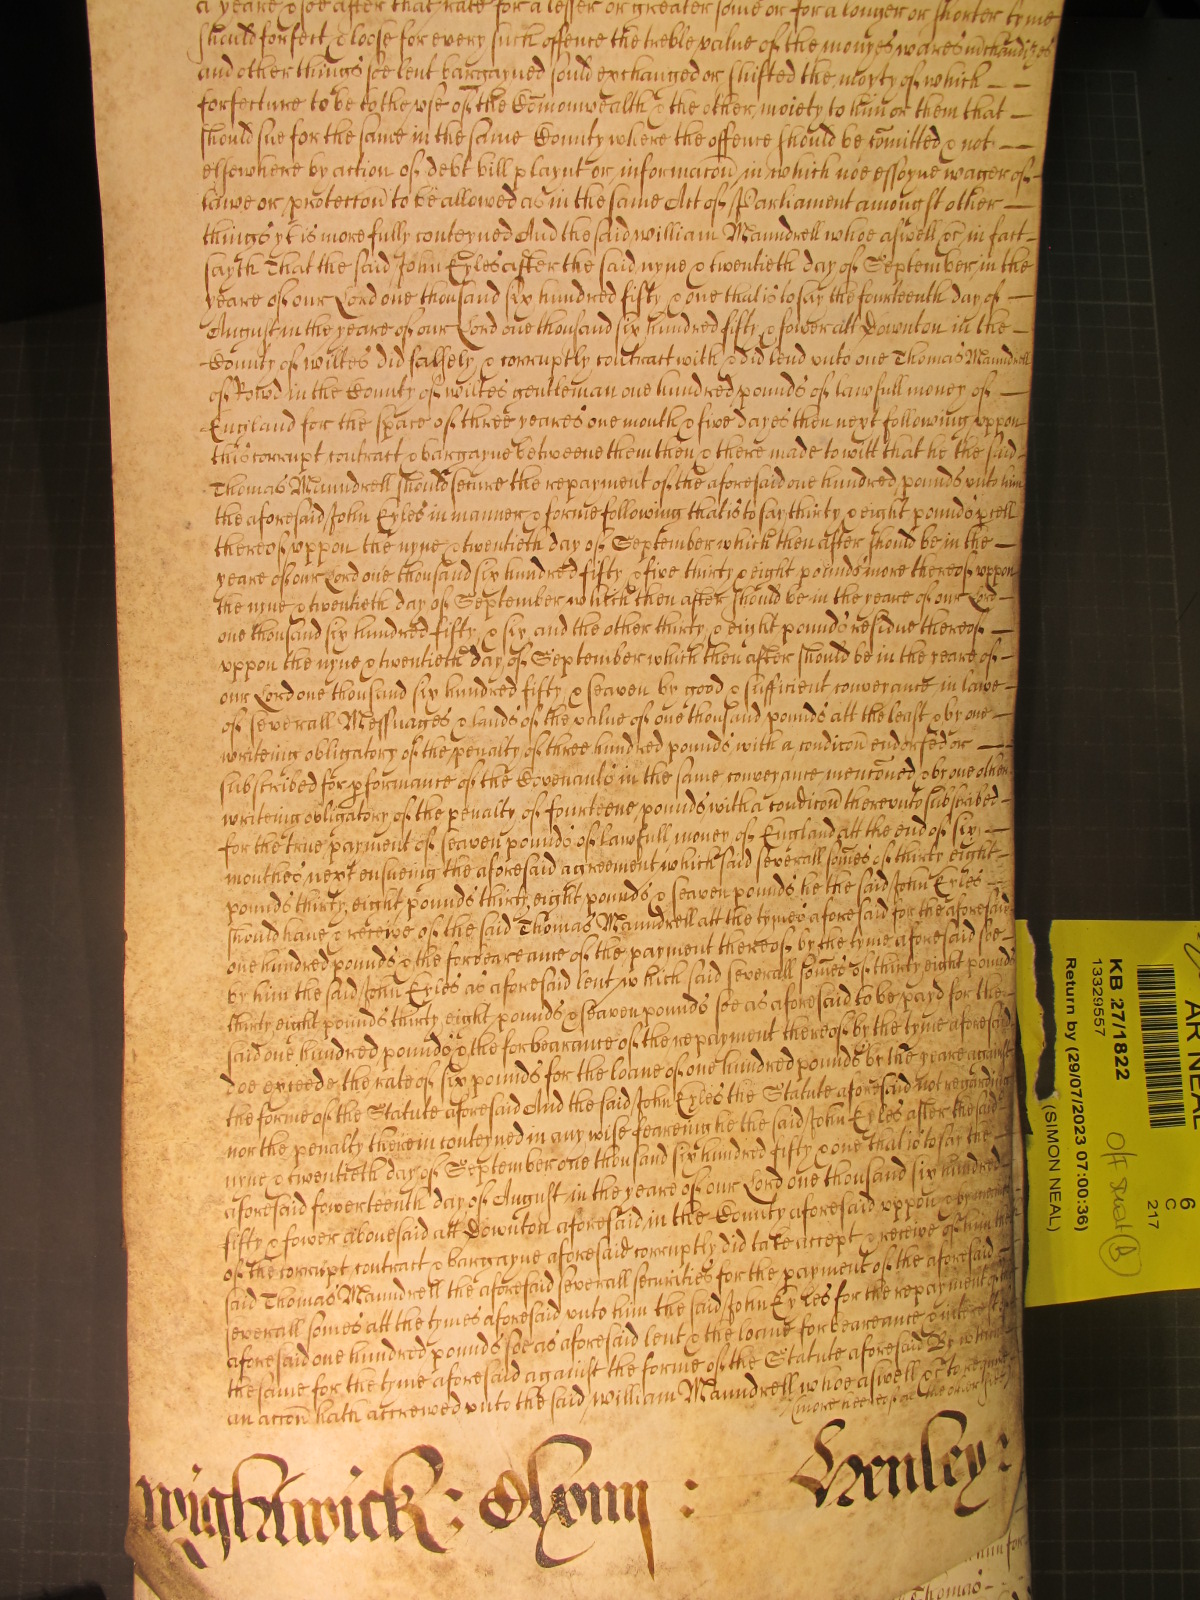 a yeare & soe after that rate for a lesser or greater some or for a longer or shorter tyme
should forfect & loose for every such offence the treble value of the monyes wares m̄chandizes
and other things soe lent bargayned sould exchanged or shifted the moyty of which — —
forfecture to be to the vse of the Com̄onwealth & the other moiety to him or them that —
should sue for the same in the same County where the offence should be com̄itted & not — —
elsewhere by action of debt bill playnt or informac̄on in which noe essoyne wager of —
lawe or proteccon to be allowed as in the same Act of Parliament amongst other —
things yt is more fully conteyned And the said William Maundrell whoe aswell &c in fact —
sayth That the said John Eyles after the said nyne & twentieth day of September in the
yeare of our Lord one thousand six hundred fifty & one that is to say the fourteenth day of —
August in the yeare of our Lord one thousand six hundred fifty & fower att Downton in the —
County of Wiltes did falsely & corruptly contract with & did lend vnto one Thomas Maundrell
of Rowd in the County of Wiltes gentleman one hundred pounds of lawfull money of —
England for the space of three yeares one month & five dayes then next following vppon
this corrupt contract & bargayne betweene them then & there made to witt that he the said
Thomas Maundrell should secure the repayment of the aforesaid one hundred pounds vnto him
the aforesaid John Eyles in manner & forme following that is to say thirty & eight pounds p̱cell
thereof vppon the nyne & twentieth day of September which then after should be in the —
yeare of our Lord one thousand six hundred fifty & five thirty & eight pounds more thereof vppon
the nyne & twentieth day of September which then after should be in the yeare of our Lord
one thousand six hundred fifty & six and the other thirty & eight pounds residue thereof —
vppon the nyne & twentieth day of September which then after should be in the yeare of —
our Lord one thousand six hundred fifty & seaven by good & sufficient conveyance in lawe —
of severall Messuages & lands of the value of one thousand pounds att the least & by one —
writeing obligatory of the penalty of three hundred pounds with a condic̄on endorsed or —
subscribed for p̱formance of the Covenants in the same conveyance menc̄oned & by one other
writeing obligatory of the penalty of fourteene pounds with a condic̄on therevnto subscribed —
for the true payment of seaven pounds of lawfull money of England att the end of six —
monthes next ensueing the aforesaid agreement which said severall somes of thirty eight —
pounds thirty eight pounds thirty eight pounds & seaven pounds he the said John Eyles —
should have & receive of the said Thomas Maundrell att the tymes aforesaid for the aforesaid
one hundred pounds & the forbeareance of the payment thereof by the tyme aforesaid soe
by him the said John Eyles as aforesaid lent which said severall somes of thirty eight pounds
thirty eight pounds thirty eight pounds & seaven pounds soe as aforesaid to be payd for the
said one hundred pounds & the forbearance of the repayment thereof by the tyme aforesaid
doe exceede the rate of six pounds for the loane of one hundred pounds by the yeare against
the forme of the Statute aforesaid And the said John Eyles the Statute aforesaid not regarding
nor the penalty therein conteyned in any wise feareing he the said John Eyles after the said
nyne & twentieth day of September one thousand six hundred fifty & one that is to say the —
aforesaid fowerteenth day of August in the yeare of our Lord one thousand six hundred
fifty & fower abovesaid att Downton aforesaid in the County aforesaid vppon & by meanes
of the corrupt contract & bargayne aforesaid corruptly did take accept & receive of him the
said Thomas Maundrell the aforesaid severall securities for the payment of the aforesaid —
severall somes att the tymes aforesaid vnto him the said John Eyles for the repayment of the
aforesaid one hundred pounds soe as aforesaid lent & the loane forbeareance & interest of
the same for the tyme aforesaid against the forme of the Statute aforesaid By which
an acc̄on hath accrewed vnto the said William Maundrell whoe aswell &c to require
(more hereof on the other side)
Wightwick : Oxon : Henley :
Thomas —
AR NEAL
KB 27/1822
13329557
Return by (29/07/2023 07:00:36)
(SIMON NEAL)
6
C
217